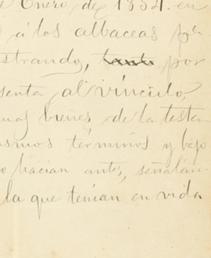 Enero, de 1834. en
á los albaceas y
strando, tanto por
senta al vínculo,
bienes de la testa
ismos términos y bajo
o hacian antes, señalan
la que tenían en vida